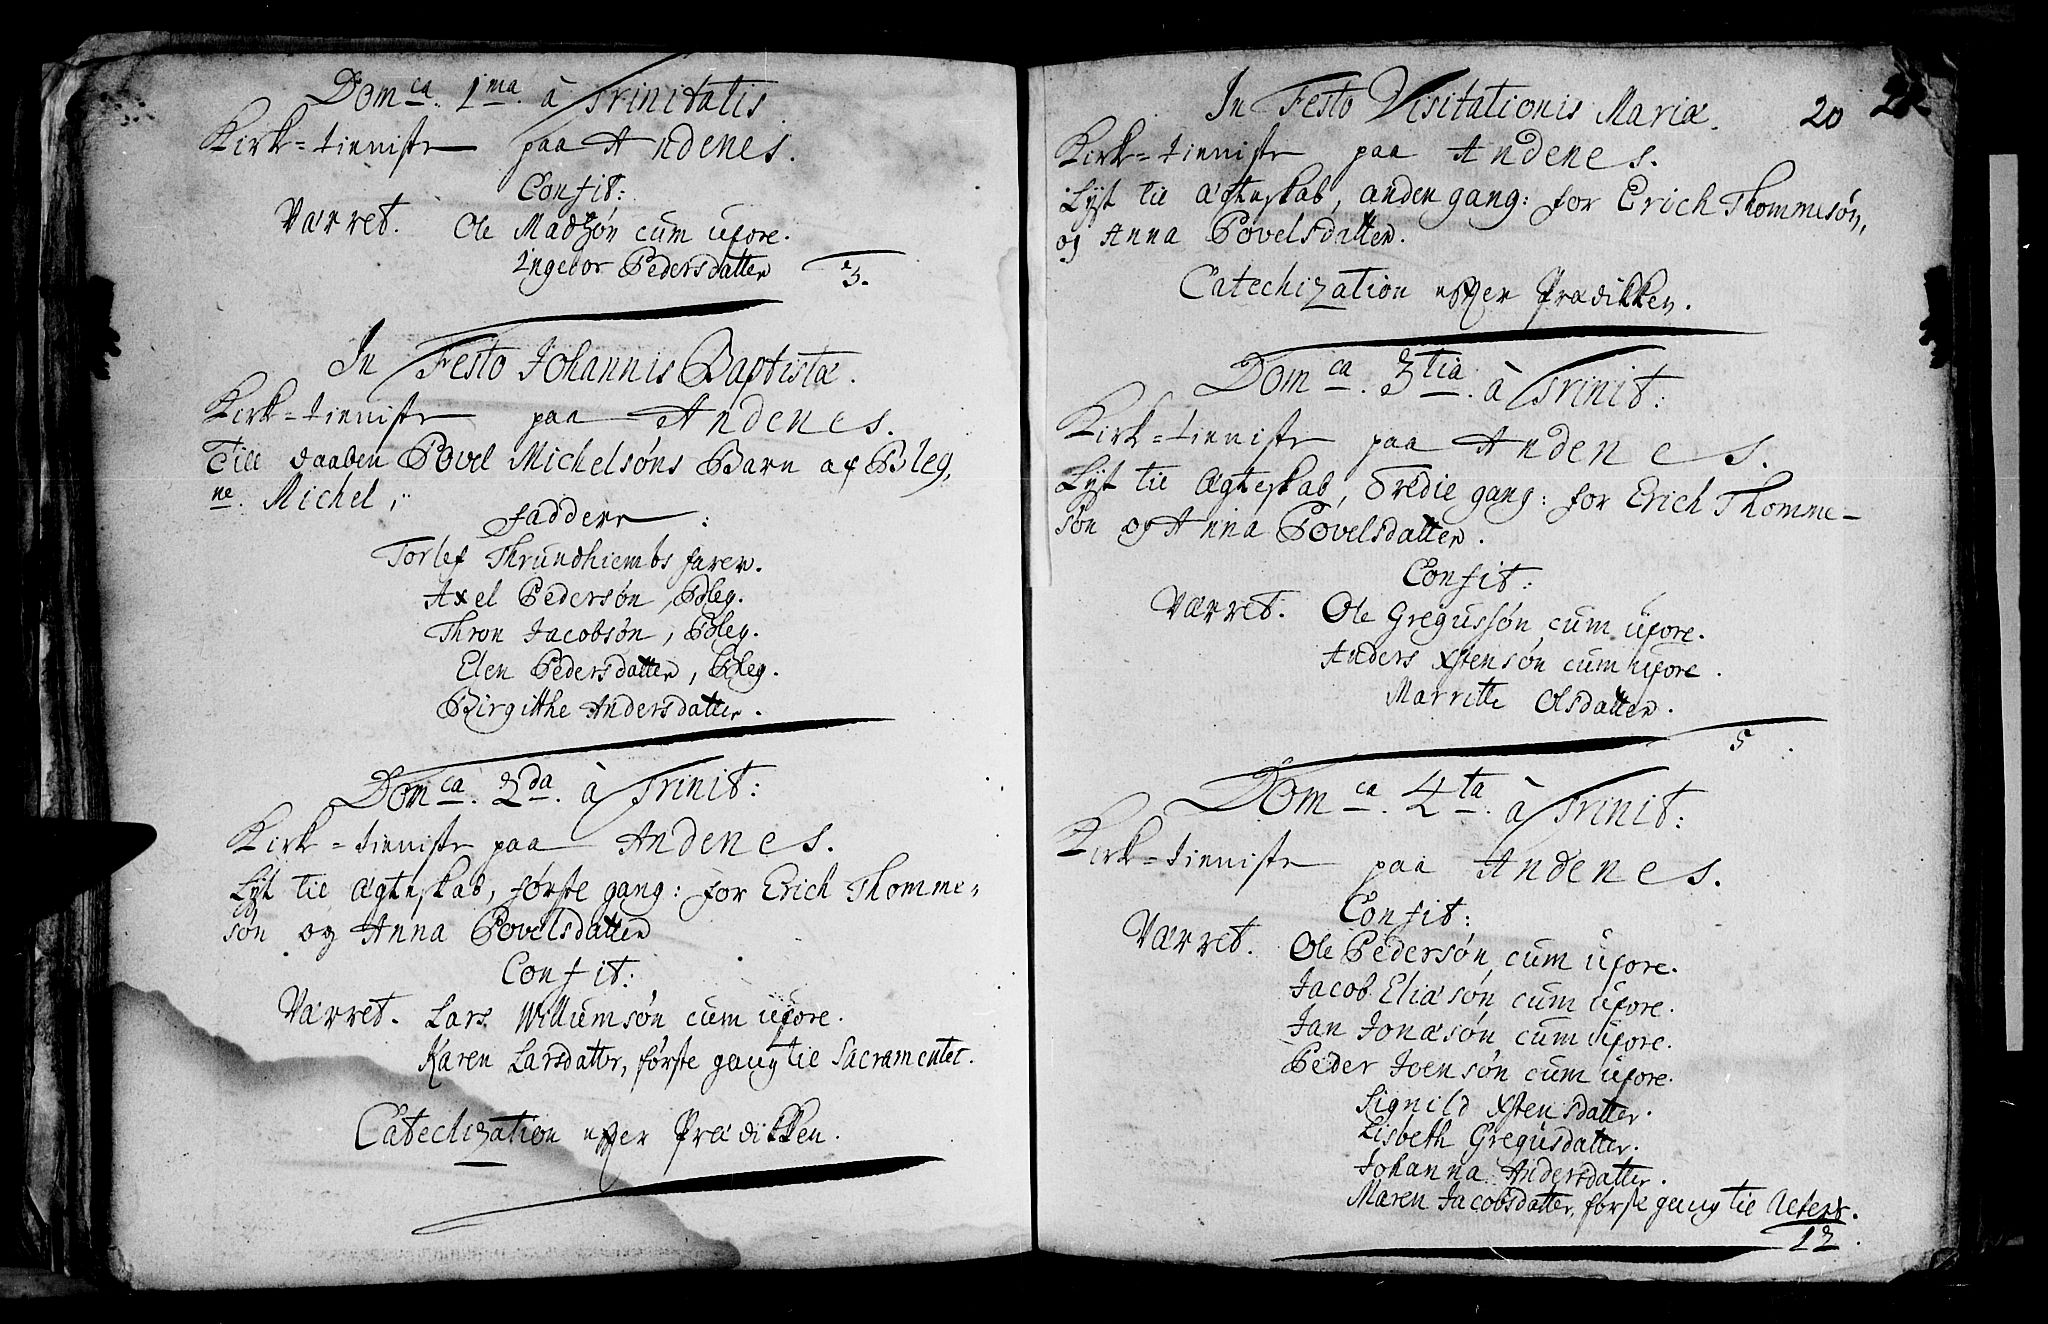 Domca. 1ma. à Trinitatis
Kirk=tieniste paa Andenes.
Confit:
Værret. Ole Madzøn cum uxore.
Ingebor Pedersdatter 3.
In Festo Johannis Baptistæ.
Kirk=tieniste paa Andenes.
Till daaben Povel Michelsøns Barn af Bleg,
ne. Michel,
Faddere:
Torlef Thrundhiembs farer.
Axel Pedersøn, Bleg.
Thron Jacobsøn, Bleg.
Elen Pedersdatter, Bleg.
Birgitthe Andersdatter.
Domca. 2da. à Trinit:
Kirk=tieniste paa Andenes.
Lyst til Ægteskab, første gang: for Erich Thomme=
søn og Anna Povelsdatter
Confit:
Værret. Lars Willumsøn cum uxore.
Karen Larsdatter, første gang til Sacramentet.
Catechization efter Prædikken.
In Festo Visitationis Mariæ. 20
Kirk=tieniste paa Andenes.
Lyst til Ægteskab, anden gang: for Erich Thommesøn,
og Anna Povelsdatter.
Catechization efter Prædikken.
Domca. 3tia. à Trinit:
Kirk=tieniste paa Andenes.
Lyst til Ægteskab, Tredie gang: for Erich Thomme-
søn og Anna Povelsdatter.
Confit:
Værret. Ole Gregussøn cum uxore.
Anders Xstensøn cum uxore.
Marrette Olsdatter.
5
Domca. 4ta. à Trinit:
Kirk=tieniste paa Andenes.
Confit:
Værret. Ole Pedersøn cum uxore.
Jacob Eliæsøn cum uxore.
Jan Jonæsøn cum uxore.
Peder Joensøn cum uxore.
Signild Xstensdatter.
Lisbeth Gregusdatter.
Johanna Andersdatter.
Maren Jacobsdatter, første gang til
12.